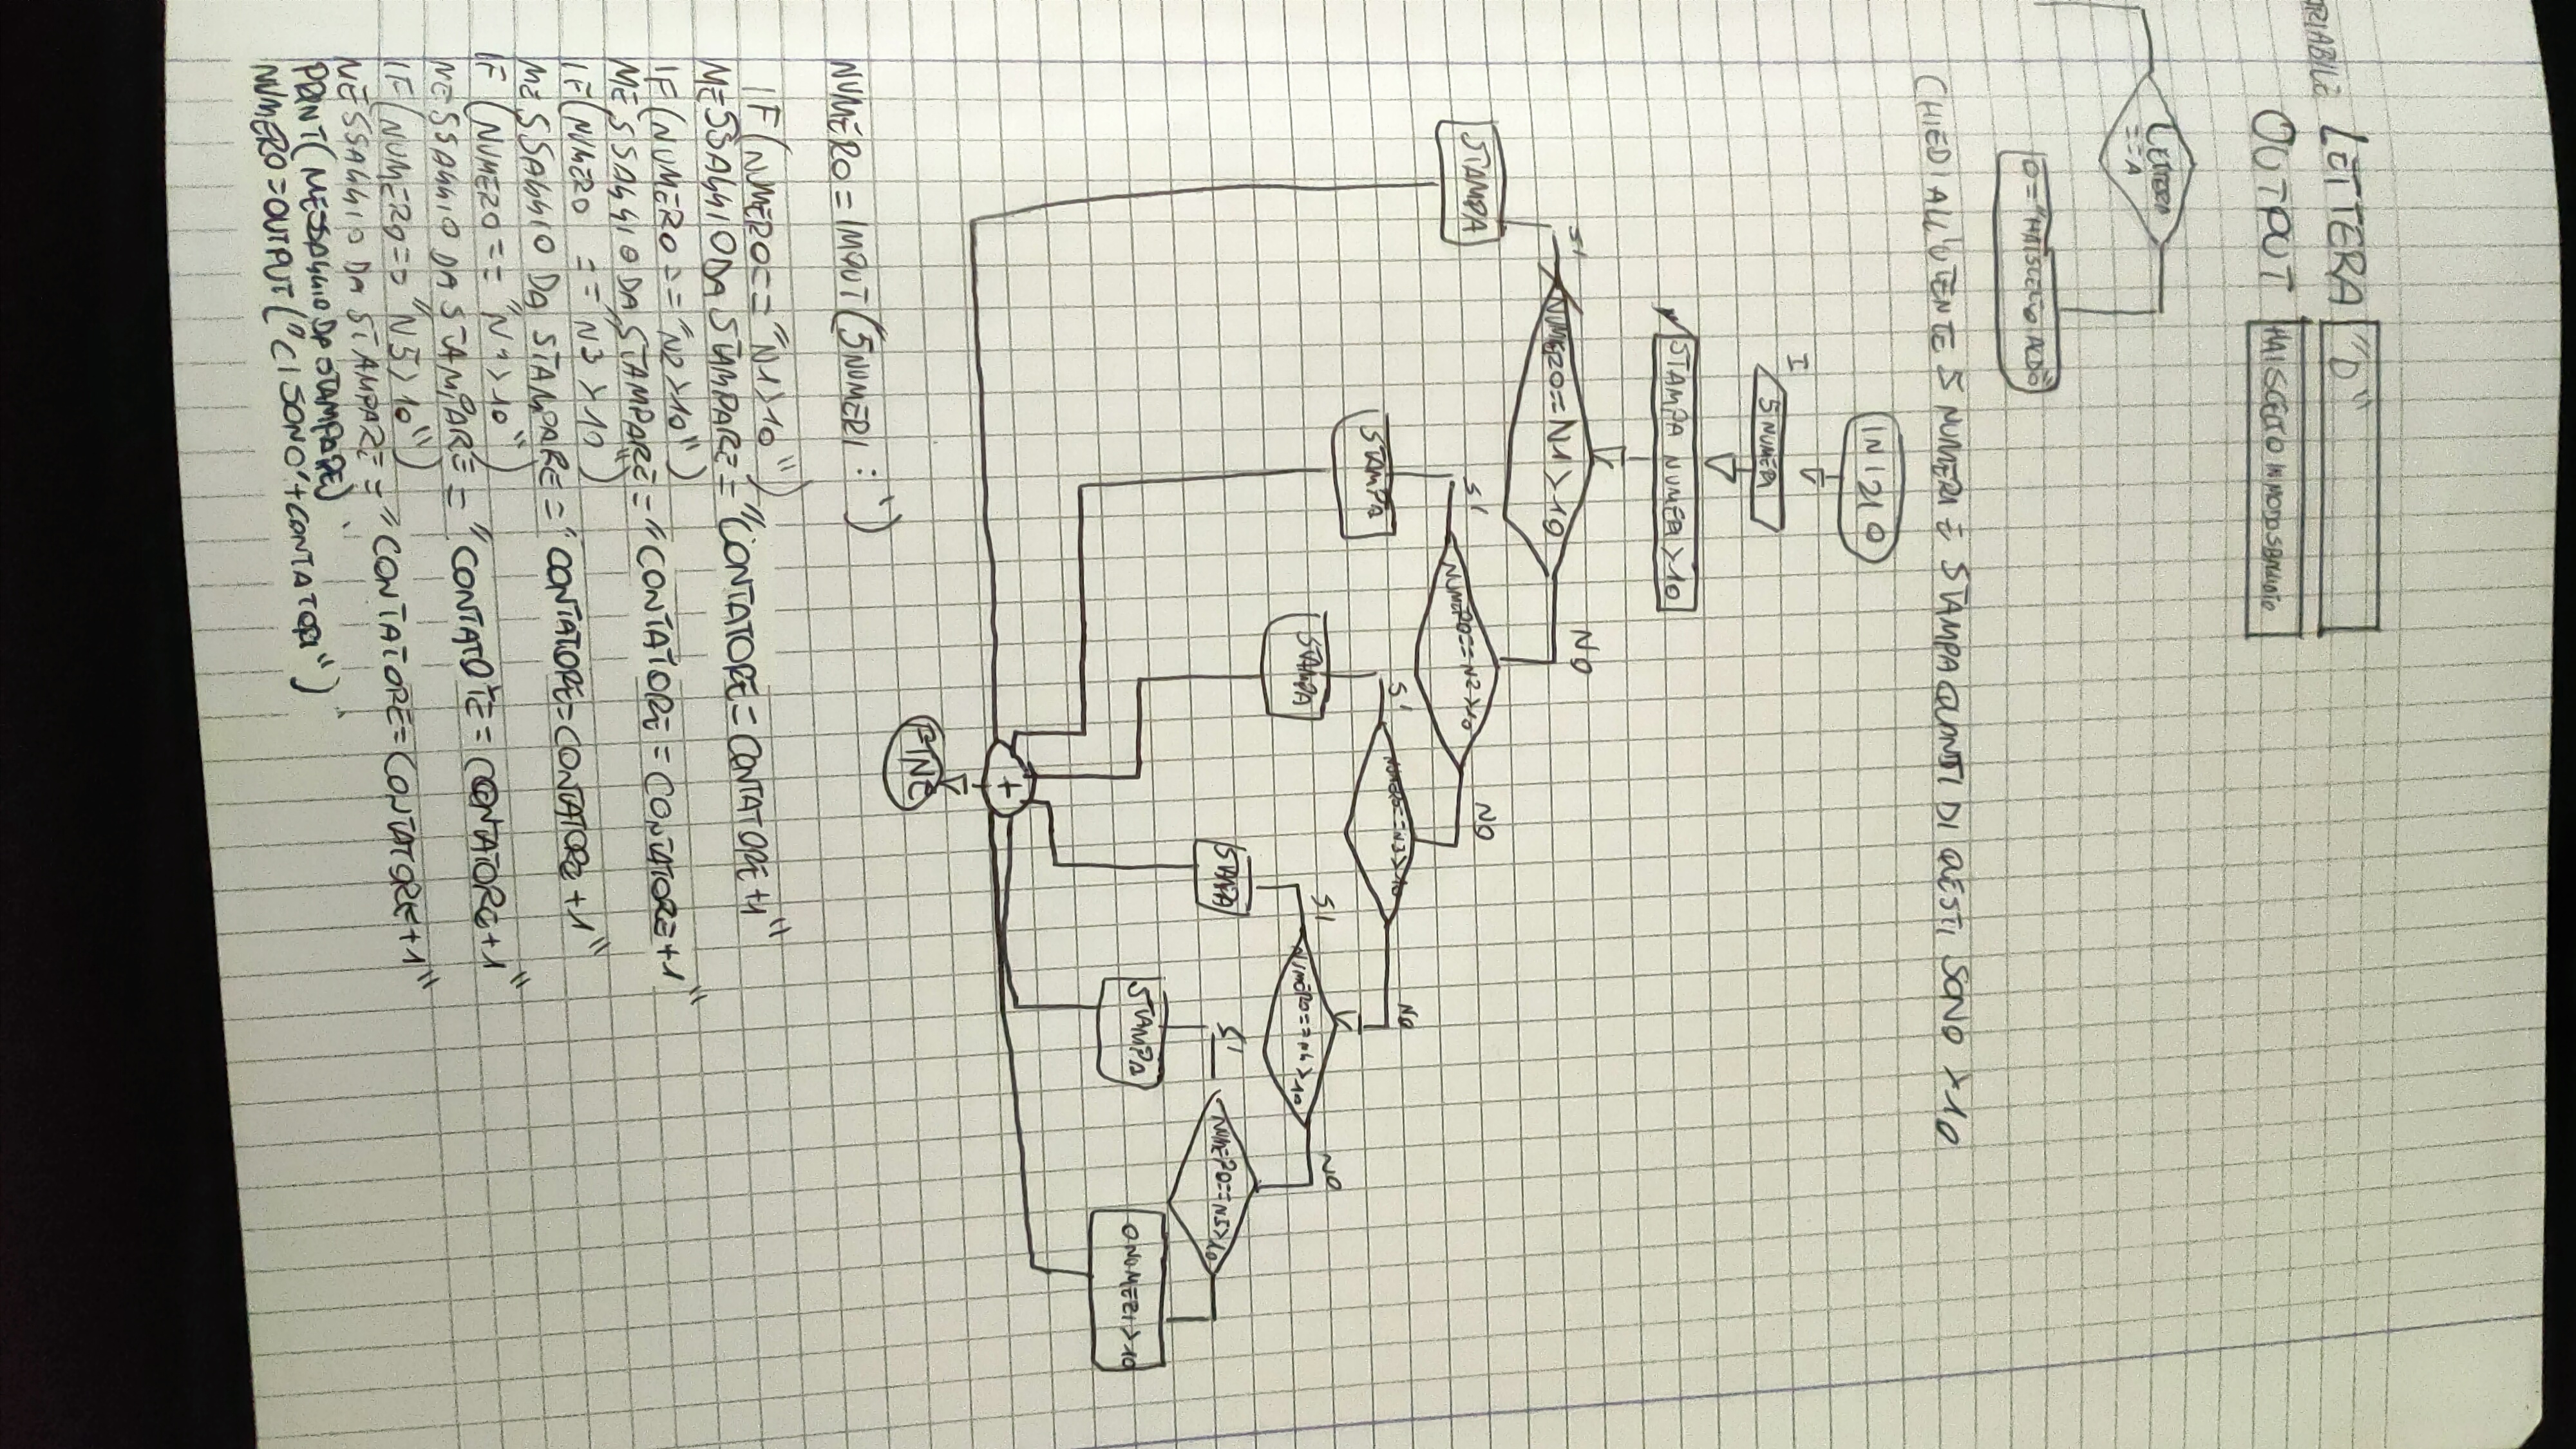 LETTERA "D"
OUTPUT HAI SCELTO IN MODO SBAGLIATO
LETTERA
==A
O="HAI SCELTO ALDO"
CHIEDI ALL'UTENTE 5 NUMERI E STAMPA QUANTI DI QUESTI SONO >10
INIZIO
I
5 NUMERI
STAMPA NUMERI >10
SI
NUMERO==N1>10
NO
STAMPA
SI
NUMERO==N2>10
NO
STAMPA
SI
NUMERO==N3>10
NO
STAMPA
SI
NUMERO==N4>10
NO
STAMPA
SI
NUMERO==N5>10
STAMPA
0 NUMERI >10
+
FINE
NUMERO = INPUT(5 NUMERI: ")
IF(NUMERO== "N1>10")
MESSAGGIO DA STAMPARE = "CONTATORE = CONTATORE+1"
IF(NUMERO == "N2>10")
MESSAGGIO DA STAMPARE = "CONTATORE = CONTATORE+1"
IF(NUMERO == "N3>10")
MESSAGGIO DA STAMPARE = "CONTATORE=CONTATORE+1"
IF(NUMERO == "N4>10")
MESSAGGIO DA STAMPARE = "CONTATORE = CONTATORE+1"
IF(NUMERO== "N5>10")
MESSAGGIO DA STAMPARE = "CONTATORE=CONTATORE+1"
PRINT(MESSAGGIO DA STAMPARE)
NUMERO=OUTPUT("CI SONO"+CONTATORI")